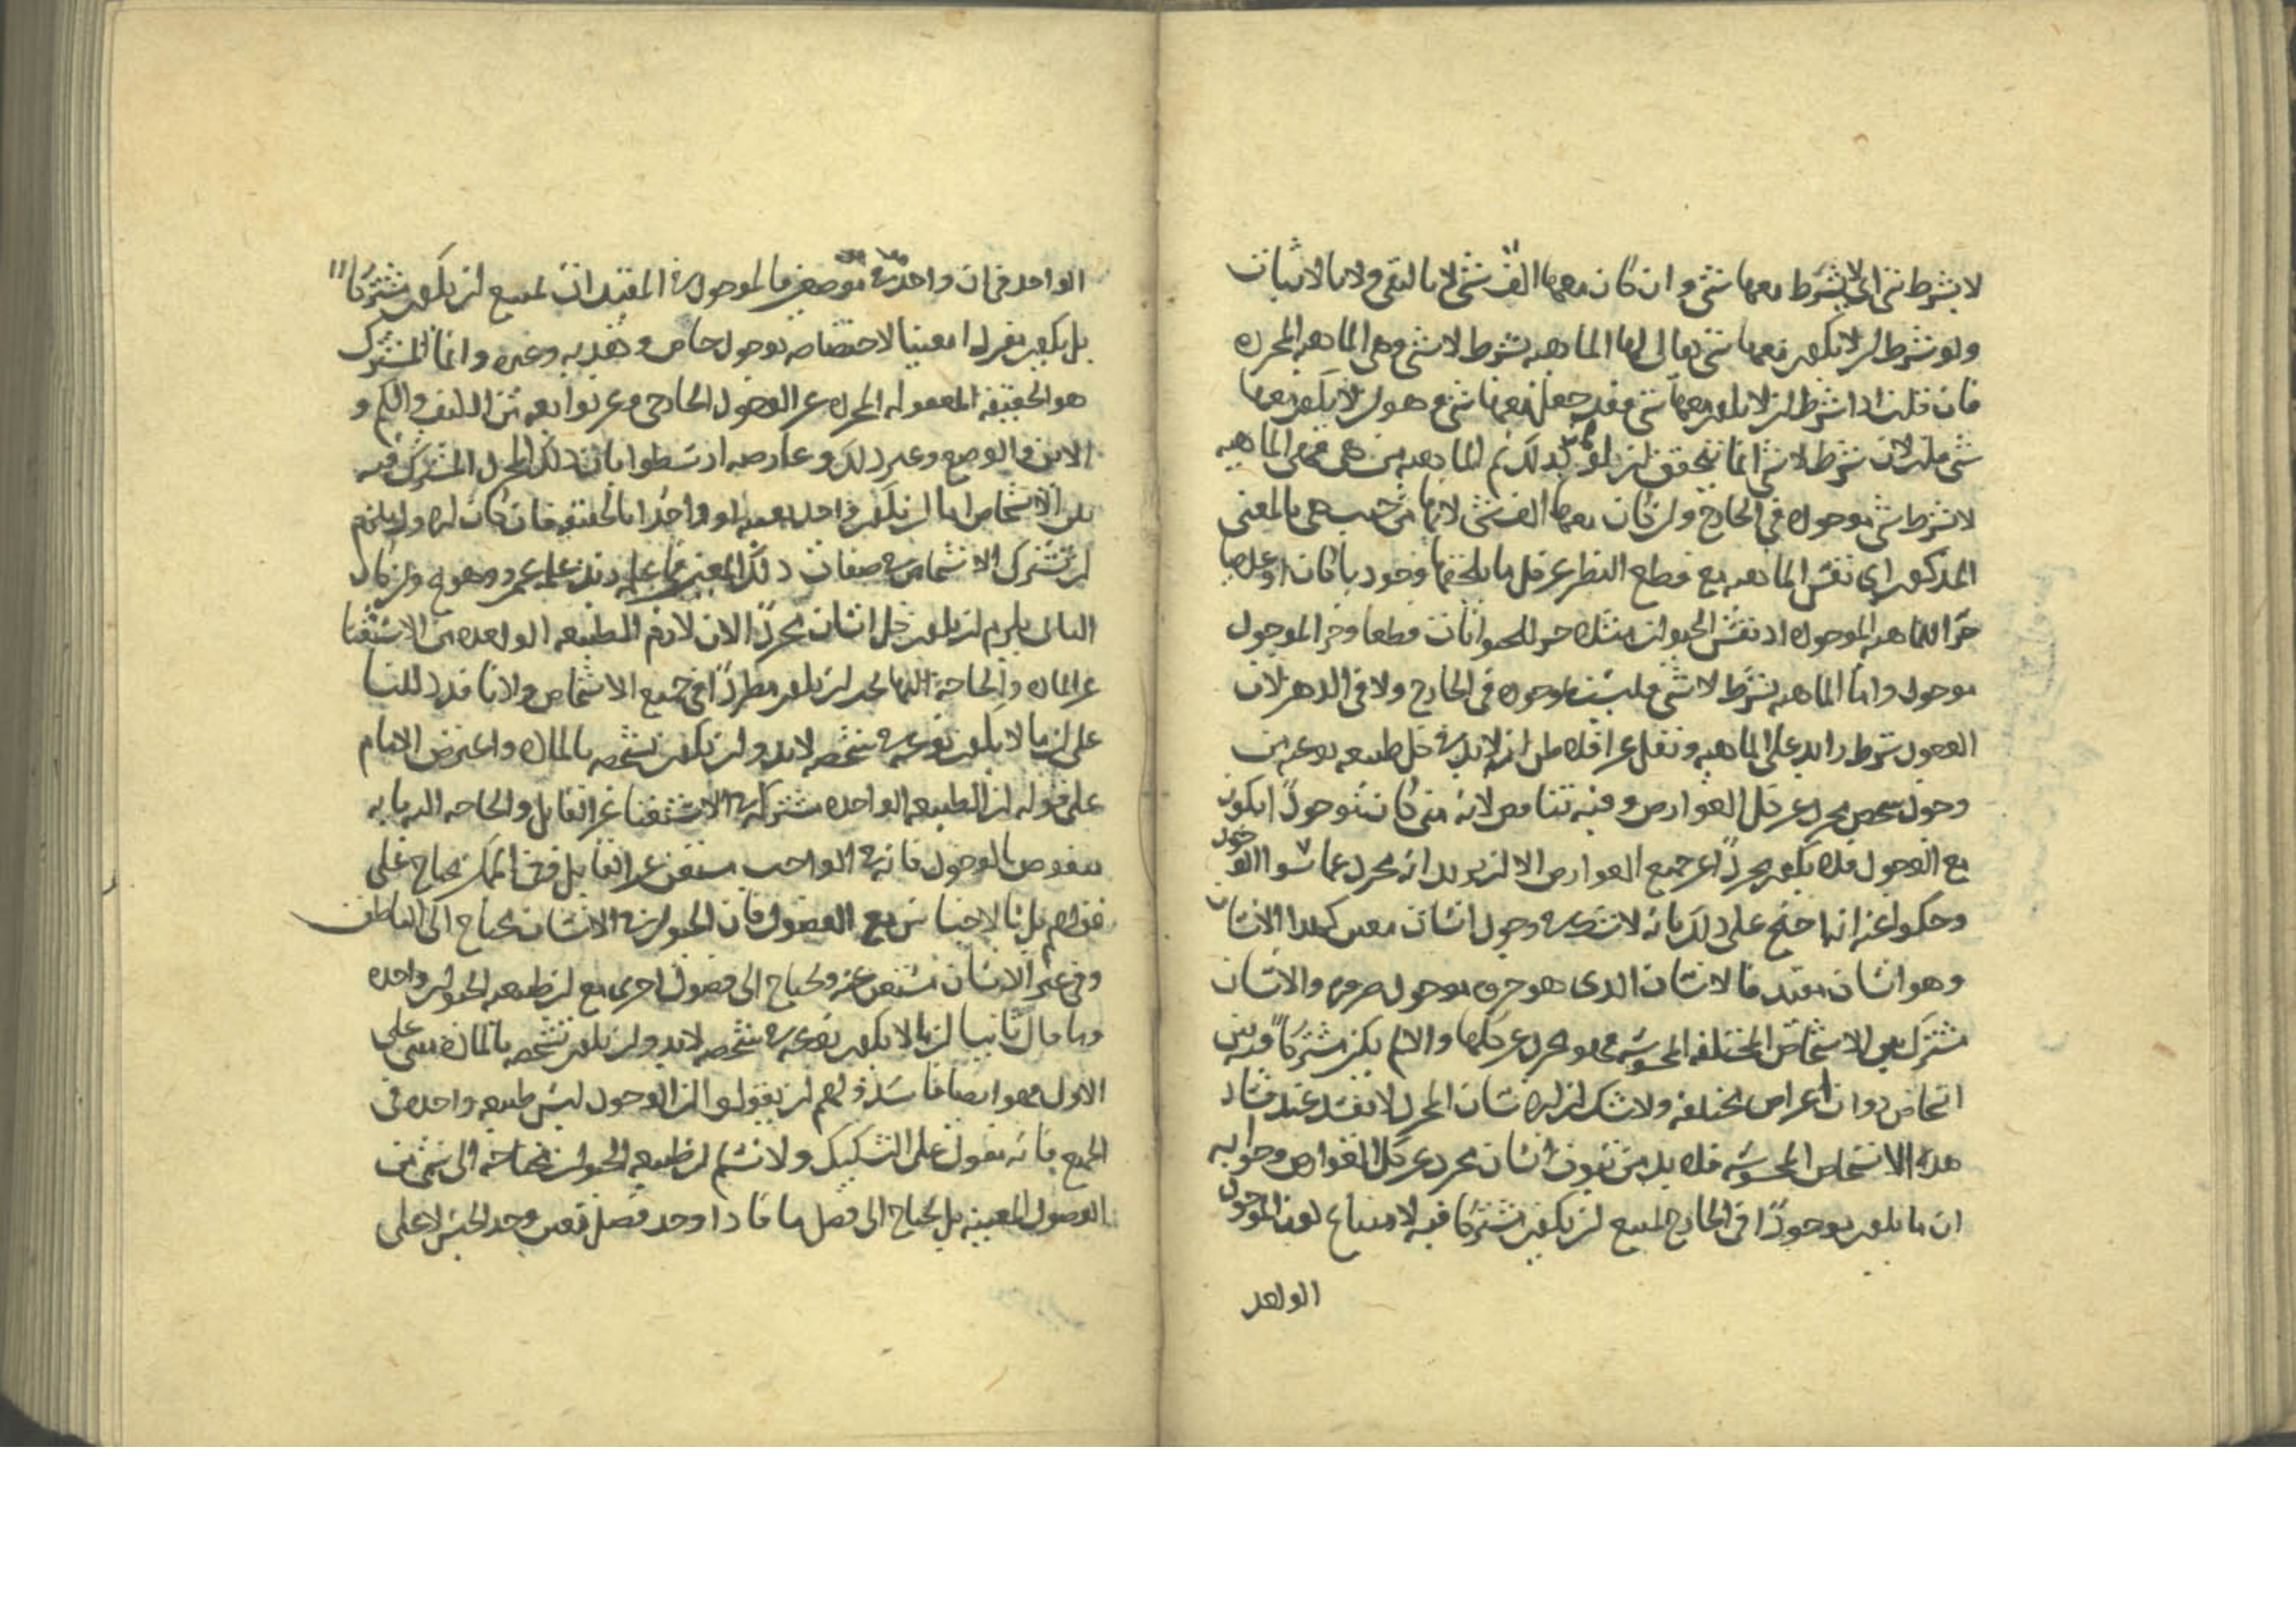 لا بشرط شئ اي لا بشرط معها شئ وان كان معها الف شئ لا بالنفي ولا بالاثبات
ولو شرط ان لا يكون معها شئ يقال لها الماهية بشرط لا شئ وهي الماهية المجردة
فان قلت اذا شرط ان لا يكون معها شئ فقد جعل معها شئ وهو ان لا يكون معها
شئ قلت لان شرط لا شئ انما يتحقق ان لو كان كذلك ثم الماهية من هي هي الماهية
لا بشرط شئ موجودة في الخارج وان كان معها الف شئ لانها من حيث هي بالمعنى
المذكور اي نفس الماهية مع قطع النظر عن كل ما يلحقها وجوديا كان او عدميا
جزء الماهية الموجودة اذ نفس الحيوان مثلا جزء للحيوانات قطعا وجزء الموجود
موجود واما الماهية بشرط لا شئ فليست موجودة في الخارج ولا في الذهن لان
الوجود شرط زايد على الماهية ونقل عن افلاطن انه لا بد في كل طبيعة نوعية من
وجود شخص مجرد عن كل العوارض وفيه تناقض لانه متى كان موجودا يكون
مع الوجود فلا يكون مجردا عن جميع العوارض الا ان يريد انه مجرد عما سوى الوجود
وحكوا عنه انه احتج على ذلك بانه لا شك في وجود انسان معين كهذا الانسان
وهو انسان مقيد فالانسان الذي هو جزؤه موجود ضرورة والانسان
مشترك بين الاشخاص المختلفة المحسوسة فهو مجرد عن كلها والا لم يكن مشتركا فيه بين
اشخاص ذوات اعراض مختلفة ولا شك ان الانسان المجرد لا يفسد عند فساد
هذه الاشخاص المحسوسة فلا بد من ثبوت انسان مجرد عن كل العوارض وجوابه
ان ما يكون موجودا في الخارج يمتنع ان يكون مشتركا فيه لامتناع كون الموجود
الواحد
الواحد في ان واحد موصوفا بالموجود المقيد ان يمتنع ان يكون مشتركا
بل يكون مفردا معينا لاختصاصه بوجود خاص وهذيه وغيره وانما المشترك
هو الحقيقة المعقولة المجردة عن الوجود الخارجي وعن توابعه من الكيف والكم و
الاين والوضع وغير ذلك وعارضه ارسطو بان ذلك المجرد المشترك فيه
بين الاشخاص اما ان يكون واحدا بعينه او واحدا بالحقيقة فان كان الاول يلزم
ان تشترك الاشخاص في صفات ذلك المعين فما علمه زيد علمه عمرو وهو محال وان كان
الثاني يلزم ان يكون كل انسان مجردا لان لازم الطبيعة الواحدة من الاستغنا
عن المادة والحاجة اليها يجب ان يكون مطردا في جميع الاشخاص ولانا قد دللنا
على ان ما لا يكون نوعه في شخصه لا بد وان يكون تشخصه بالمادة واعترض الامام
على قوله ان الطبيعة الواحدة مشتركة في الاستغنا عن القابل والحاجة اليه بانه
منقوض بالوجود فانه في الواجب مستغن عن القابل وفي الممكن يحتاج على
قولهم بل بالاجناس مع الفصول فان الحيوان في الانسان يحتاج الى الناطق
وفي غير الانسان مستغن عنه ويحتاج الى فصول اخرى مع ان طبيعة الحيوان واحدة
وما قال ثانيا ان ما لا يكون نوعه في شخصه لا بد وان يكون تشخصه بالمادة مبني على
الاول فهو ايضا فاسد ولهم ان يقولوا ان الوجود ليس طبيعة واحدة في
الجميع فانه مقول على التشكيك ولا نسلم ان طبيعة الحيوان محتاجة الى شئ من
الفصول المعينة بل يحتاج الى فصل ما فاذا وجد فصل معين وجد الجنس لا على